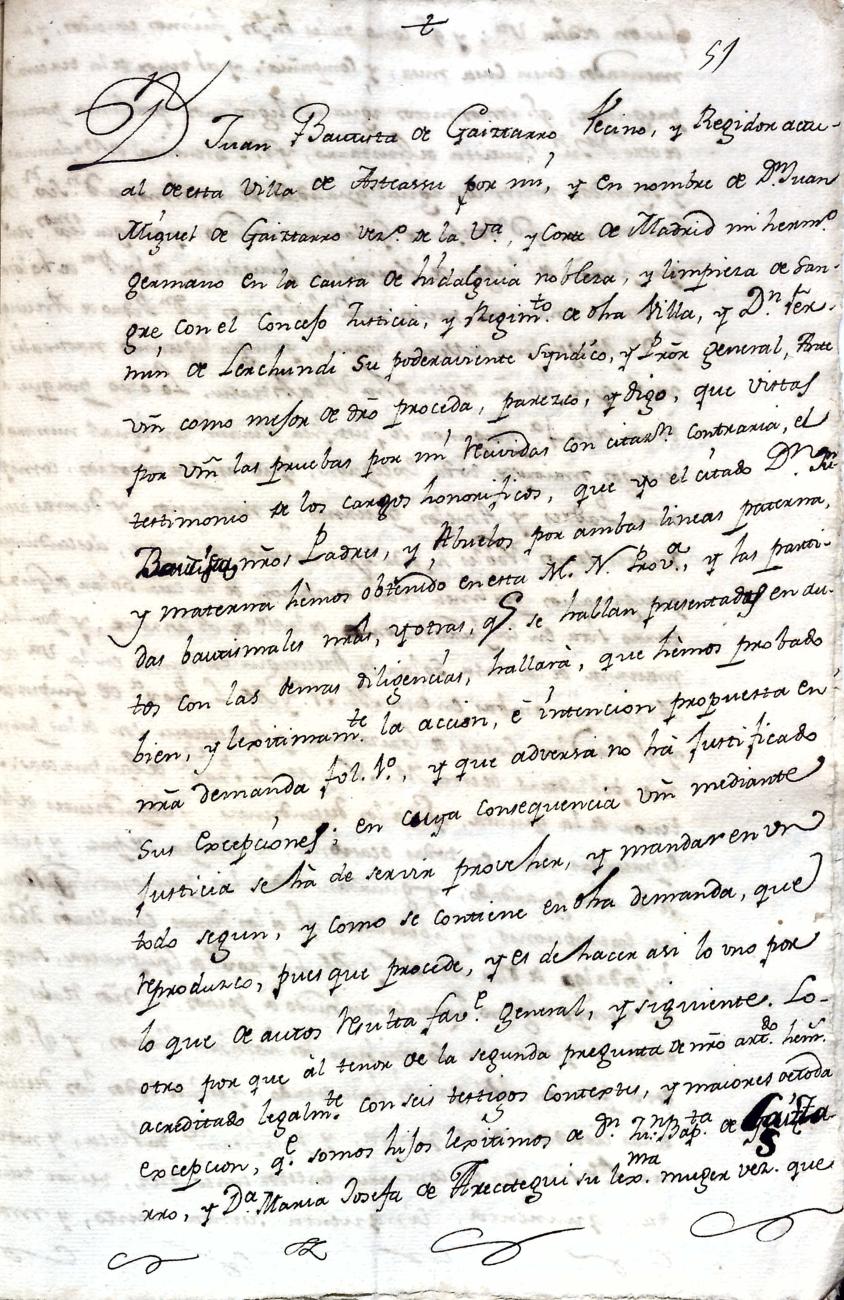 51
D. Juan Bautista de Gaiztarro Vecino, y Regidor actu-
al de esta Villa de Asteassu por mi, y en nombre de Dn. Juan
Miguel de Gaiztarro vezo. de la Va., y Corte de Madrid mi hermo.
germano en la causa de hidalguia nobleza, y limpieza de San-
gre con el Concejo Justicia, y Regimto. de dha Villa, y Dn. Fer-
min de Lerchundi su poderaviente Syndico, y Pror general, Ante
vm como mejor de dro proceda, parezco, y digo, que vistas
por vm las pruebas por mi recividas con citazn. contraria, el
testimonio de los cargos honorificos, que yo el citado Dn. Jn.
Bautista, nros Padres, y Abuelos por ambas lineas paterna,
y materna hèmos obtenido en esta M. N. Prova., y las parti-
das bautismales nras, y otras, q. se hallan presentadas en au-
tos con las demas diligencias, hallarà, que hèmos probado
bien, y lexitimamte. la accion, è intencion propuesta en
nra demanda fol. 1o., y que adversa no hà justificado
sus excepciones; en cuya consequencia vm mediante
justicia se hà de servir proveher, y mandar en un
todo segun, y como se contiene en dha demanda, que
reproduzco, pues que procede, y es de hacer asi lo uno por
lo que de autos resulta fave. general, y siguiente. Lo
otro por que àl tenor de la segunda pregunta de nro artdo. hemos
acreditado legalmte. con seis testigos contextes, y maiores de toda
excepcion, qe. somos hijos lexitimos de dn. Jn. Bapta. de Gaizta-
rro, y Da. Maria Josefa de Arecetegui su lexma. muger vez. que